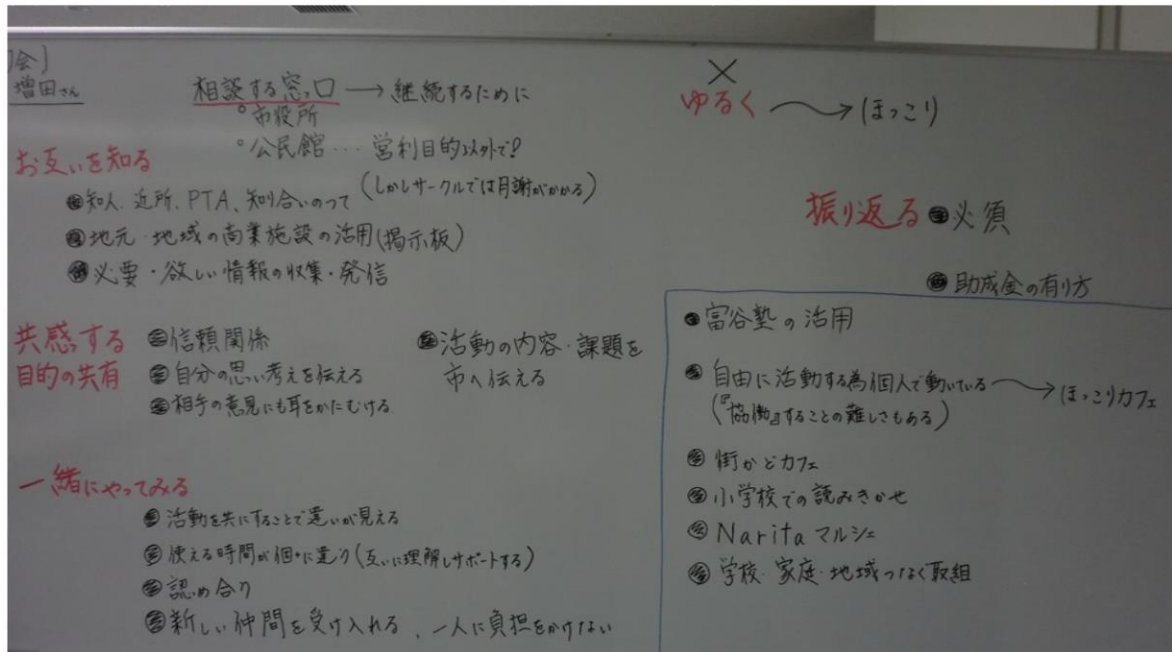 会)
増田さん
相談する窓口 → 継続するために
○市役所
○公民館… 営利目的以外で?
(しかしサークルでは月謝がかかる)
お互いを知る
知人、近所、PTA、知り合いのつて
地元・地域の商業施設の活用(掲示板)
必要・欲しい情報の収集・発信
共感する
目的の共有
信頼関係
自分の思い考えを伝える
相手の意見にも耳をかたむける
活動の内容・課題を
市へ伝える
一緒にやってみる
活動を共にすることで違いが見える
使える時間が個々に違う(互いに理解しサポートする)
認め合う
新しい仲間を受け入れる、一人に負担をかけない
×
ゆるく → ほっこり
振り返る 必須
助成金の有り方
富谷塾の活用
自由に活動する為個人で動いている → ほっこりカフェ
(『協働』することの難しさもある)
街かどカフェ
小学校での読みきかせ
Naritaマルシェ
学校・家庭・地域つなぐ取組